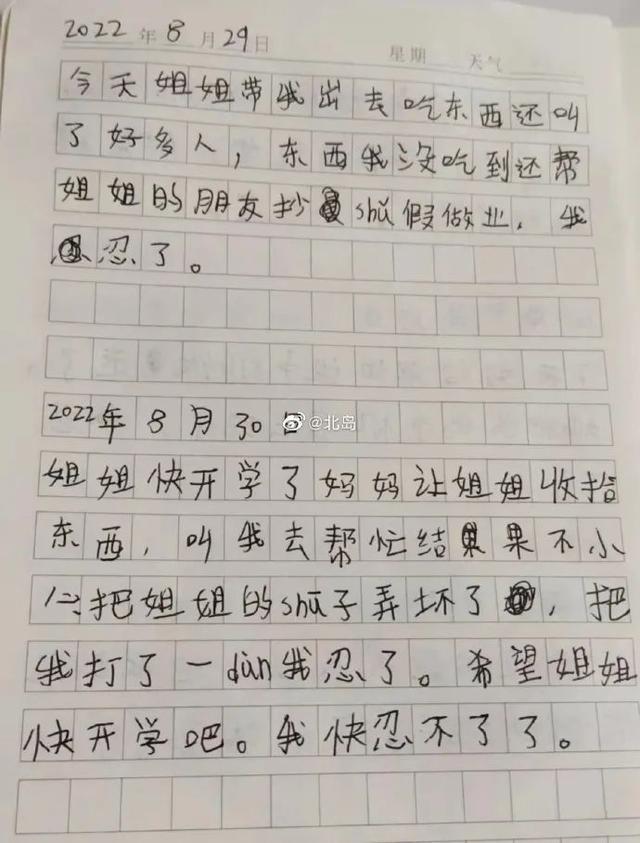 2022年8月29日 星期 天气
今天姐姐带我出去吃东西还叫
了好多人，东西我没吃到还帮
姐姐的朋友抄shǔ假做业，我
忍了。
2022年8月30日
@北岛
姐姐快开学了妈妈让姐姐收拾
东西，叫我去帮忙结果不小
心把姐姐的shū子弄坏了，把
我打了一dùn我忍了。希望姐姐
快开学吧。我快忍不了了。